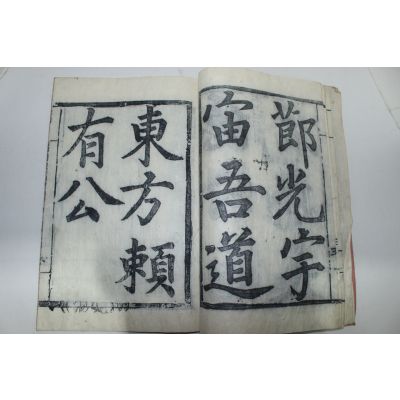 莭光宇
宙吾道
東方賴
有公